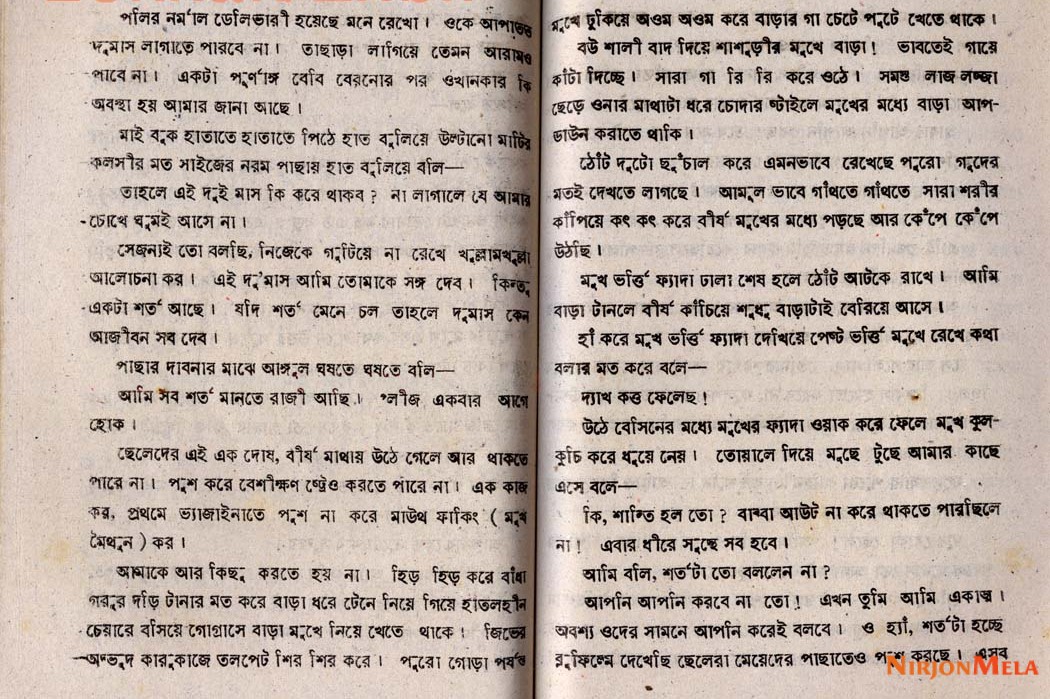 পলির নর্মাল ডেলিভারী হয়েছে মনে রেখো। ওকে আপাততঃ
দুমাস লাগাতে পারবে না। তাছাড়া লাগিয়ে তেমন আরামও
পাবে না। একটা পূর্ণাঙ্গ বেবি বেরনোর পর ওখানকার কি
অবস্থা হয় আমার জানা আছে।
মাই বুক হাতাতে হাতাতে পিঠে হাত বুলিয়ে উল্টানো মাটির
কলসীর মত সাইজের নরম পাছায় হাত বুলিয়ে বলি—
তাহলে এই দুই মাস কি করে থাকব? না লাগালে যে আমার
চোখে ঘুমই আসে না।
সেজন্যই তো বলছি, নিজেকে গুটিয়ে না রেখে খুল্লামখুল্লা
আলোচনা কর। এই দু'মাস আমি তোমাকে সঙ্গ দেব। কিন্তু
একটা শর্ত আছে। যদি শর্ত মেনে চল তাহলে দুমাস কেন
আজীবন সব দেব।
পাছার দাবনার মাঝে আঙ্গুল ঘষতে ঘষতে বলি—
আমি সব শর্ত মানতে রাজী আছি। প্লীজ একবার আগে
হোক।
ছেলেদের এই এক দোষ, বীর্য মাথায় উঠে গেলে আর থাকতে
পারে না। পুশ করে বেশীক্ষণ স্টেও করতে পারে না। এক কাজ
কর, প্রথমে ভ্যাজাইনাতে পুশ না করে মাউথ ফাকিং (মুখ
মৈথুন) কর।
আমাকে আর কিছু করতে হয় না। হিড় হিড় করে বাঁধা
গরুর দড়ি টানার মত করে বাড়া ধরে টেনে নিয়ে গিয়ে হাতলহীন
চেয়ারে বসিয়ে গোগ্রাসে বাড়া মুখে নিয়ে খেতে থাকে। জিভের
অদ্ভুদ কারুকাজে তলপেট শির শির করে। পুরো গোড়া পর্যন্ত
মুখে ঢুকিয়ে অওম অওম করে বাড়ার গা চেটে পুটে খেতে থাকে।
বউ শালী বাদ দিয়ে শাশুড়ীর মুখে বাড়া! ভাবতেই গায়ে
কাঁটা দিচ্ছে। সারা গা রি রি করে ওঠে। সমস্ত লাজ লজ্জা
ছেড়ে ওনার মাথাটা ধরে চোদার স্টাইলে মুখের মধ্যে বাড়া আপ-
ডাউন করাতে থাকি।
ঠোঁট দুটো ছুঁচাল করে এমনভাবে রেখেছে পুরো গুদের
মতই দেখতে লাগছে। আমূল ভাবে গাঁথতে গাঁথতে সারা শরীর
কাঁপিয়ে কৎ কৎ করে বীর্য মুখের মধ্যে পড়ছে আর কেঁপে কেঁপে
উঠছি।
মুখ ভর্ত্তি ফ্যাদা ঢালা শেষ হলে ঠোঁট আটকে রাখে। আমি
বাড়া টানলে বীর্য কাঁচিয়ে শুধু বাড়াটাই বেরিয়ে আসে।
হাঁ করে মুখ ভর্ত্তি ফ্যাদা দেখিয়ে পেস্ট ভর্ত্তি মুখে রেখে কথা
বলার মত করে বলে—
দ্যাখ কত্ত ফেলেছ!
উঠে বেসিনের মধ্যে মুখের ফ্যাদা ওয়াক করে ফেলে মুখ কুল-
কুচি করে ধুয়ে নেয়। তোয়ালে দিয়ে মুছে টুছে আমার কাছে
এসে বলে—
কি, শান্তি হল তো? বাব্বা আউট না করে থাকতে পারছিলে
না! এবার ধীরে সুস্থে সব হবে।
আমি বলি, শর্তটা তো বললেন না?
আপনি আপনি করবে না তো! এখন তুমি আমি একাত্ম।
অবশ্য ওদের সামনে আপনি করেই বলবে। ও হ্যাঁ, শর্তটা হচ্ছে
ব্লুফিল্মে দেখেছি ছেলেরা মেয়েদের পাছাতেও পুশ করছে। এসব
NIRJONMELA